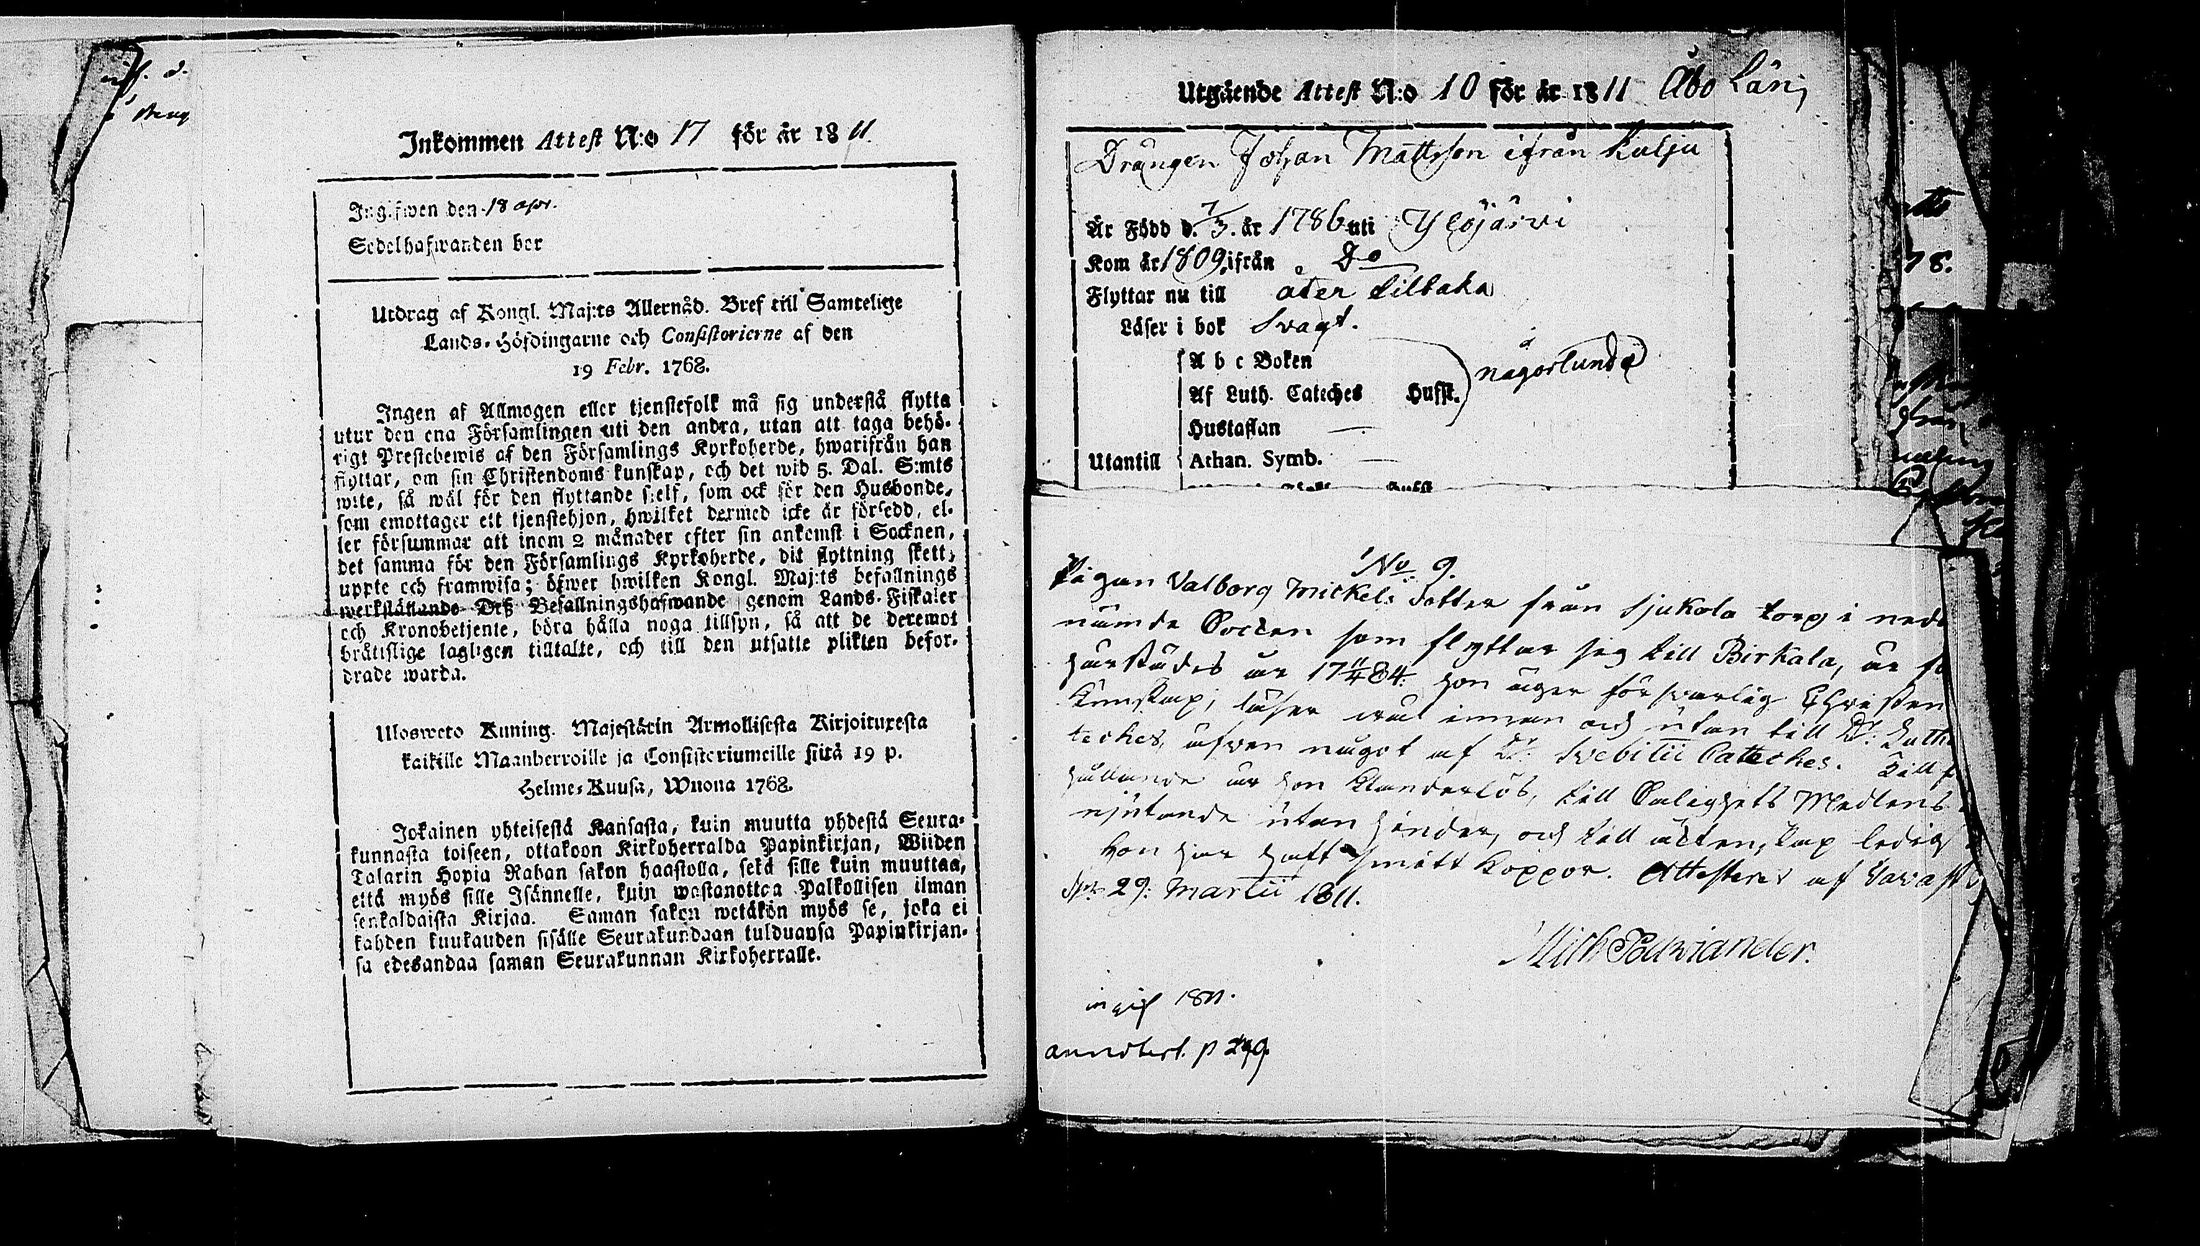 Inkommen Attest N:o 17 för år 1811.
Ingifwen den 18 apr.
Sedelhafwanden bor
Utdrag af Kongl. Maj:ts Allernåd. Bref till Samtelige
Lands-Höfdingarne och Consistorierne af den
19 Febr. 1768.
Ingen af Allmogen eller tjenstefolk må sig understå flytta
utur den ena Församlingen uti den andra, utan att taga behö-
rigt Prestebewis af den Församlings Kyrkoherde, hwarifrån han
flyttar, om sin Christendoms kunskap, och det wid 5. Dal. S:mts
wite, så wäl för den flyttande sjelf, som ock för den Husbonde,
som emottager ett tjenstehjon, hwilket dermed icke är försedd, el-
ler försummar att inom 2 månader efter sin ankomst i Socknen,
det samma för den Församlings Kyrkoherde, dit flyttning skett,
uppte och framwisa; öfwer hwilken Kongl. Maj:ts befallnings
werkställande Deß Befallningshafwande genom Lands-Fiskaler
och Kronobetjente, böra hålla noga tillsyn, så att de deremot
bråtislige lagligen tilltalte, och till den utsatte plikten befor-
drade warda.
Ulosweto Kuning. Majestätin Armollisesta Kirjoituxesta
kaikille Maanherroille ja Consistoriumeille siitä 19 p.
Helme-Kuusa, Wuona 1768.
Jokainen yhteisestä Kansasta, kuin muutta yhdestä Seura-
kunnasta toiseen, ottakoon Kirkoherralda Papinkirjan, Wiiden
Talarin Hopia Rahan sakon haastolla, sekä sille kuin muuttaa,
että myös sille Isännelle, kuin wastanottaa Palkollisen ilman
senkaldaista Kirjaa. Saman sakon wetäkön myös se, joka ei
kahden kuukauden sisälle Seurakundaan tulduansa Papinkirjan-
sa edesandaa saman Seurakunnan Kirkoherralle.
Utgående Attest N:o 10 för år 1811 Åbo Län
Drängen Johan Mattsson ifrån Kulju
Är Född d. 7/3. år 1786 uti Ylöjärvi
Kom år 1809. ifrån Do
Flyttar nu till åter tilbaka
Läser i bok Svagt.
A b c Boken
Af Luth. Cateches Husst. någorlunda
Hustaflan —
Utantill Athan. Symb. —
No 9.
Pigan Valborg Mickels dotter från Sjukola torp i
nämde Socken som flyttar sig till Birkala, är
härstädes år 1784. hon äger försvarlig Christen
kunskap, läser wäl innan och utan till Dr. Luth
teches, äfven något af Dr. Svebilii Cateches. Till
hållande är hon klanderlös, till Salighets Medlens
njutande utan hinder, och till äktenskap ledig
Hon har haft smått koppor. Attesterar af
29. Martii 1811.
ingif 1811.